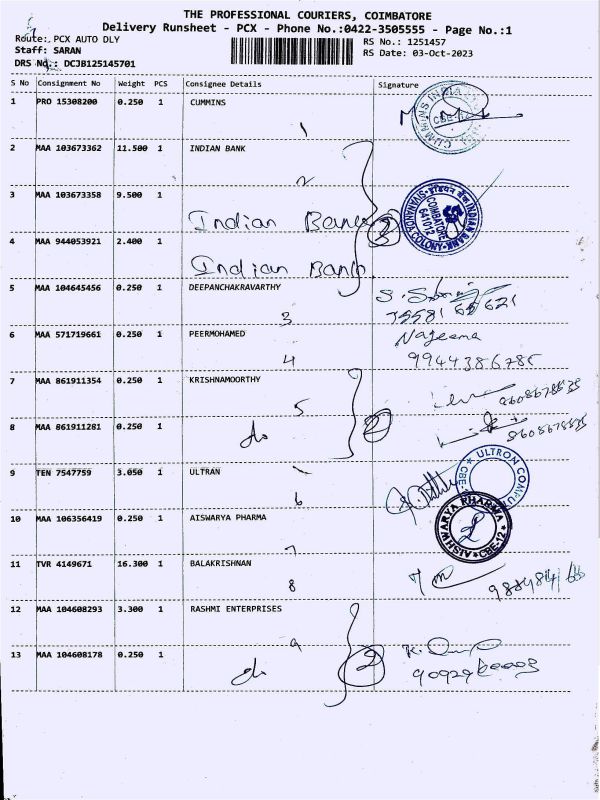 THE PROFESSIONAL COURIERS, COIMBATORE
Delivery Runsheet - PCX - Phone No.:0422-3505555 - Page No.:1
Route: PCX AUTO DLY
RS No.: 1251457
Staff: SARAN
RS Date: 03-Oct-2023
DRS No.: DCJB125145701
S No Consignment No Weight PCS Consignee Details Signature
1 PRO 15308200 0.250 1 CUMMINS
1
2 MAA 103673362 11.500 1 INDIAN BANK
2
3 MAA 103673358 9.500 1
Indian Bank 3
SIVANANDA COLONY INDIAN BANK इंडियन बैंक COIMBATORE 641012
4 MAA 944053921 2.400 1
Indian Bank
5 MAA 104645456 0.250 1 DEEPANCHAKRAVARTHY
3
6 MAA 571719661 0.250 1 PEERMOHAMED Najeema
4 9944386785
7 MAA 861911354 0.250 1 KRISHNAMOORTHY
5
8 MAA 861911281 0.250 1
do 2
9 TEN 7547759 3.050 1 ULTRAN
6
ULTRON COMPU CBE-
10 MAA 106356419 0.250 1 AISWARYA PHARMA
7
AISHWARYA PHARMA CBE-12
11 TVR 4149671 16.300 1 BALAKRISHNAN
8
12 MAA 104608293 3.300 1 RASHMI ENTERPRISES
9
13 MAA 104608178 0.250 1
do 2